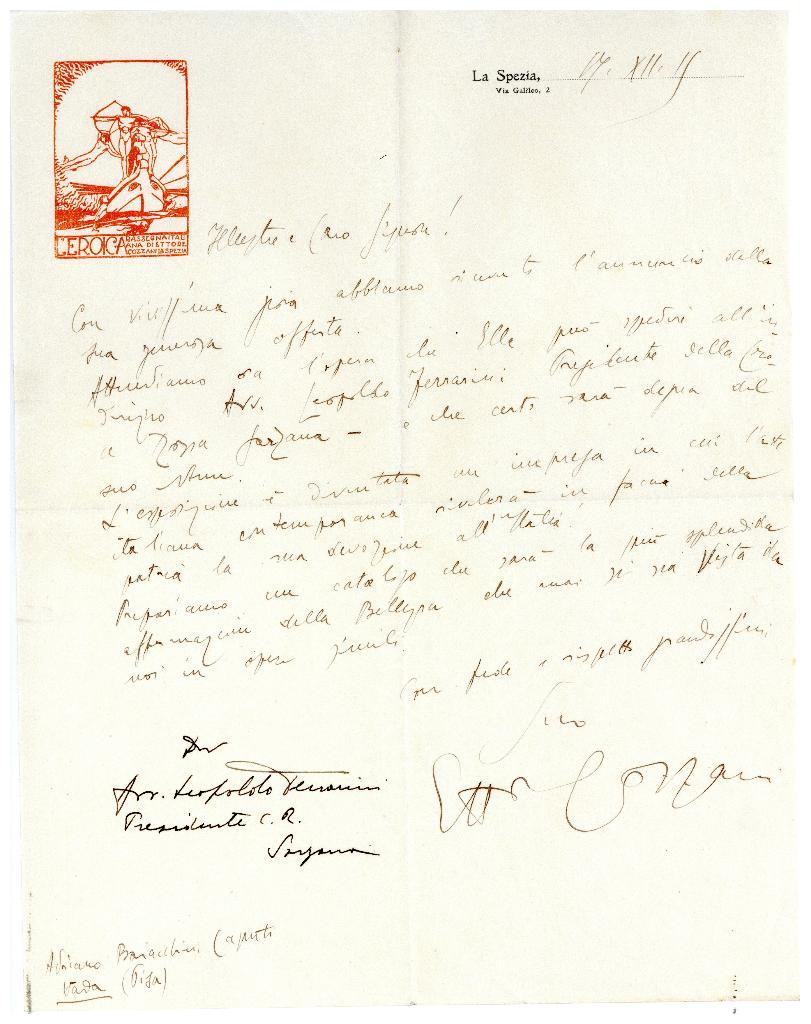 La Spezia, 17. XII. 15
Via Galileo, 2
L'EROICA RASSEGNA ITAL
IANA DI ETTORE
COZZANI LA SPEZIA
Illustre e Caro Signore!
Con vivissima gioia abbiamo ricevuto l'annuncio della
sua generosa offerta.
Attendiamo ora l'opera che Ella può spedire all'in
dirizzo Avv. Leopoldo Ferrarini Presidente della Cro-
ce Rossa Sarzana - e che certo sarà degna del
suo nome.
L'esposizione è diventata un'impresa in cui l'arte
italiana contemporanea rivelerà in faccia della
patria la sua devozione all'Italia!
Prepariamo un catalogo che sarà la più splendida
affermazione della Bellezza che mai si sia vista da
noi in opere simili.
Con fede e rispetto grandissimi
Suo
Ettore Cozzani
Avv. Leopoldo Ferrarini
Presidente C. R.
Sarzana
Adriano Baracchini Caputi
Vada (Pisa)